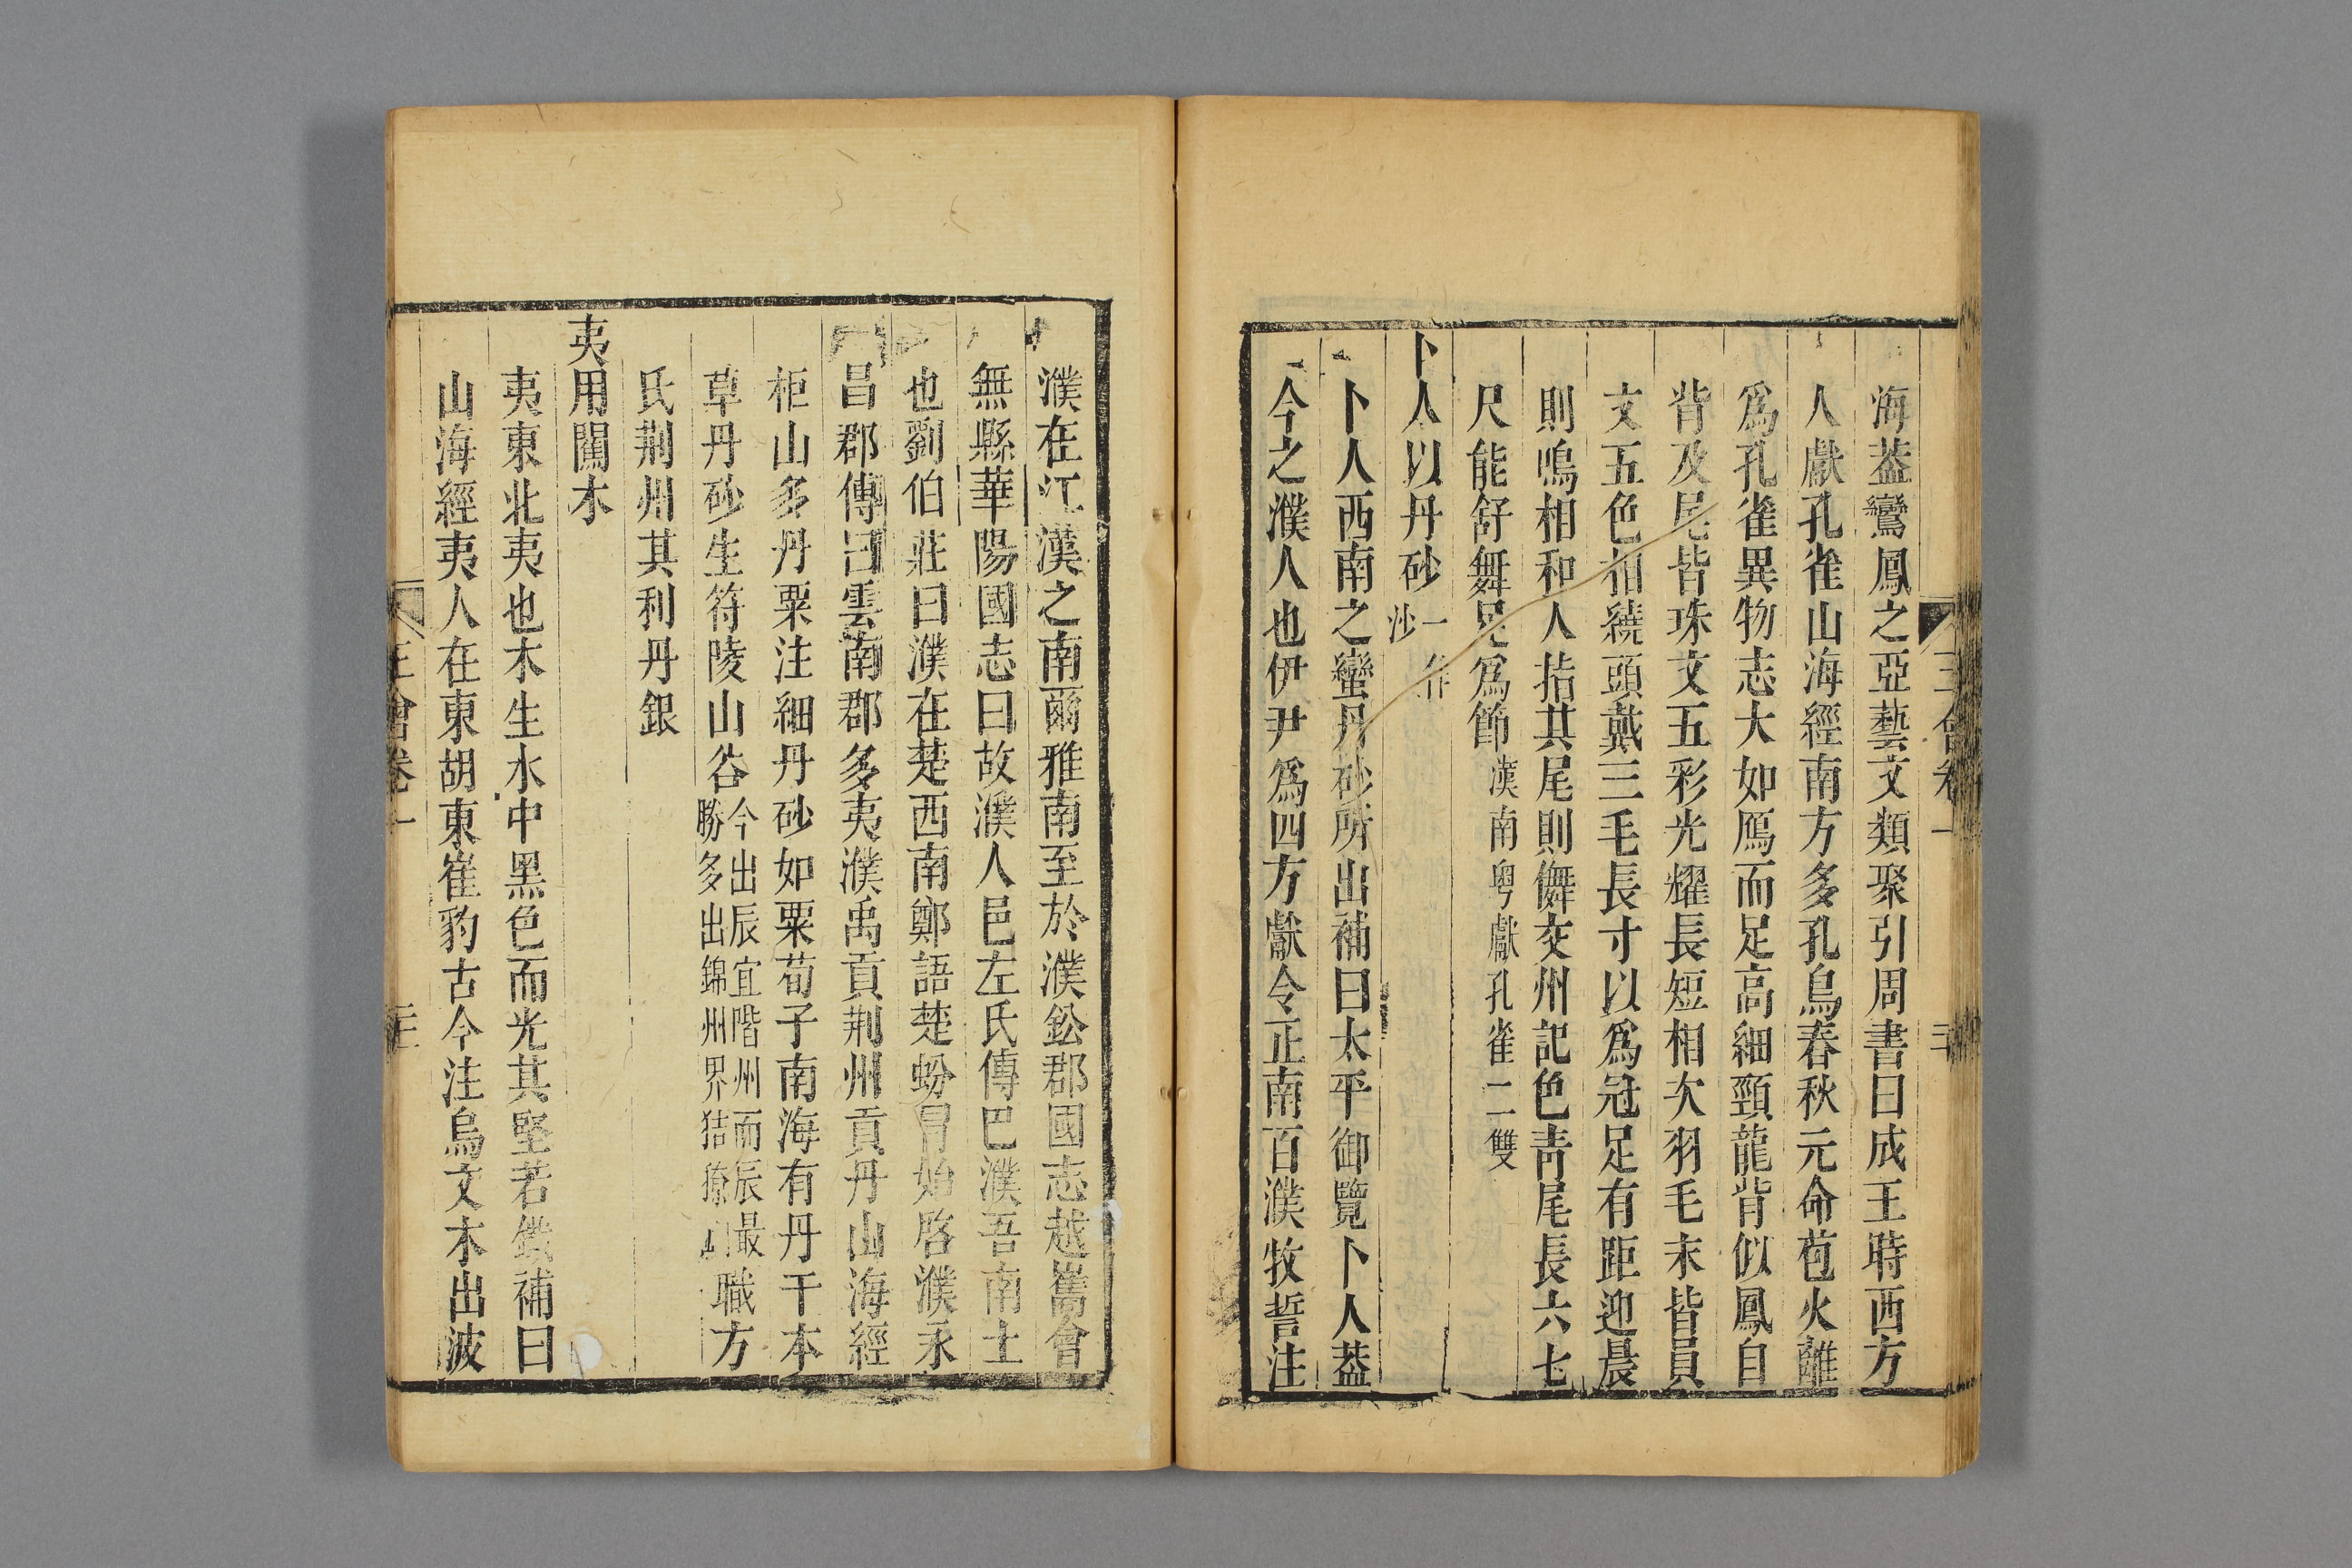 海葢鸞鳳之亞藝文類聚引周書曰成王時西方
人獻孔雀山海經南方多孔鳥春秋元命苞火離
爲孔雀異物志大如鴈而足高細頸龍背似鳳自
背及尾皆珠文五彩光耀長短相次羽毛末皆員
文五色相繞頭戴三毛長寸以爲冠足有距迎晨
則鳴相和人指其尾則儛交州記色靑尾長六七
尺能舒舞足爲節漢南粤獻孔雀二雙
卜人以丹砂一作沙
卜人西南之蠻丹砂所出補曰太平御覽卜人葢
今之濮人也伊尹爲四方獻令正南百濮牧誓注
濮在江漢之南爾雅南至於濮鈆郡國志越嶲會
無縣華陽國志曰故濮人邑左氏傳巴濮吾南土
也劉伯莊曰濮在楚西南鄭語楚蚡冒始啓濮永
昌郡傳曰雲南郡多夷濮禹貢荆州貢丹山海經
柜山多丹粟注細丹砂如粟荀子南海有丹干本
草丹砂生符陵山谷今出辰宜階州而辰最勝多出錦州界狤獠職方
氏荆州其利丹銀
夷用䦪木
夷東北夷也木生水中黑色而光其堅若鐵補曰
山海經夷人在東胡東崔豹古今注烏文木出波
王會卷一